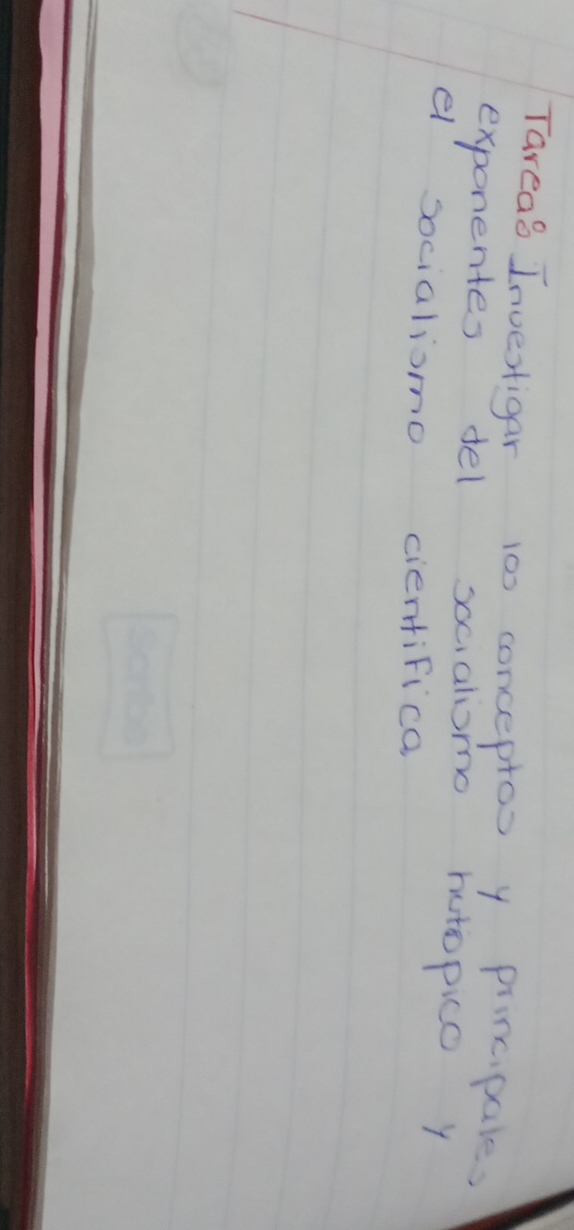 Tarea: Investigar los conceptos y principales
exponentes del socialismo hutopico y
el socialismo cientifica